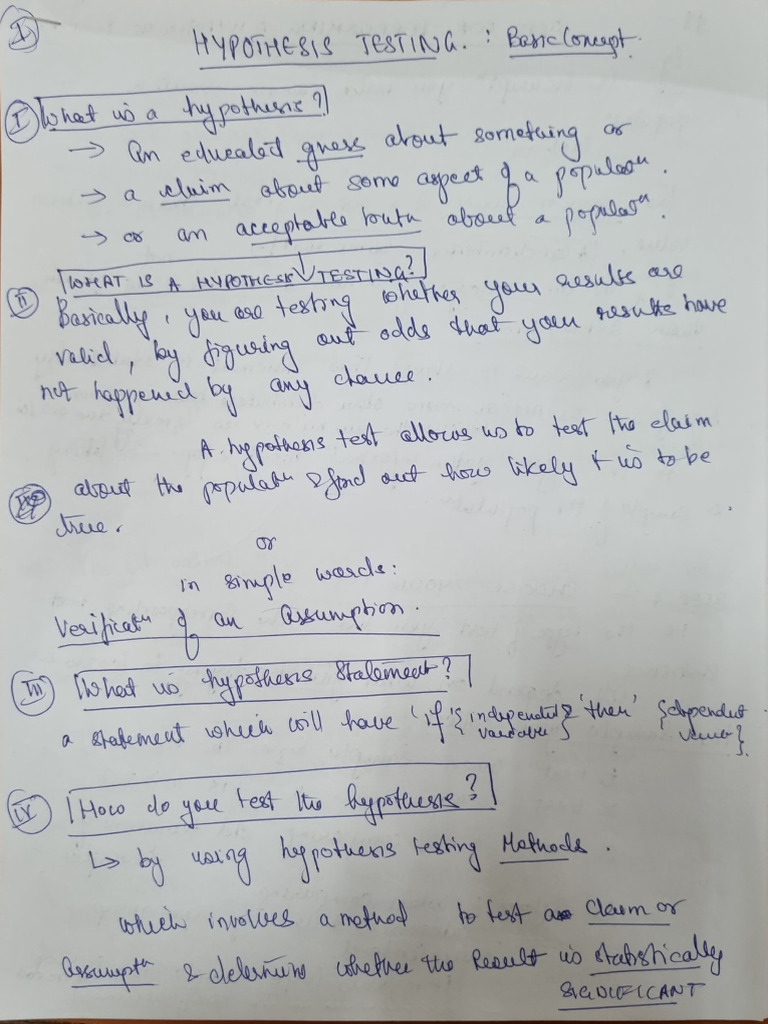 I
HYPOTHESIS TESTING. : Basic Concept.
I What is a hypothesis?
→ An educated guess about something or
→ a claim about some aspect of a populatⁿ.
→ or an acceptable truth about a populatⁿ.
WHAT IS A HYPOTHESIS TESTING?
II Basically, you are testing whether your results are
valid, by figuring out odds that your results have
not happened by any chance.
A hypothesis test allows us to test the claim
about the populatⁿ & find out how likely it is to be
true.
or
in simple words:
Verificatⁿ of an assumption.
III What is hypothesis statement?
a statement which will have 'if' {independent variable} 'then' {dependent
IV How do you test the hypothesis?
↳ by using hypothesis testing Methods.
which involves a method to test a claim or
assumptⁿ & determine whether the Result is statistically
SIGNIFICANT